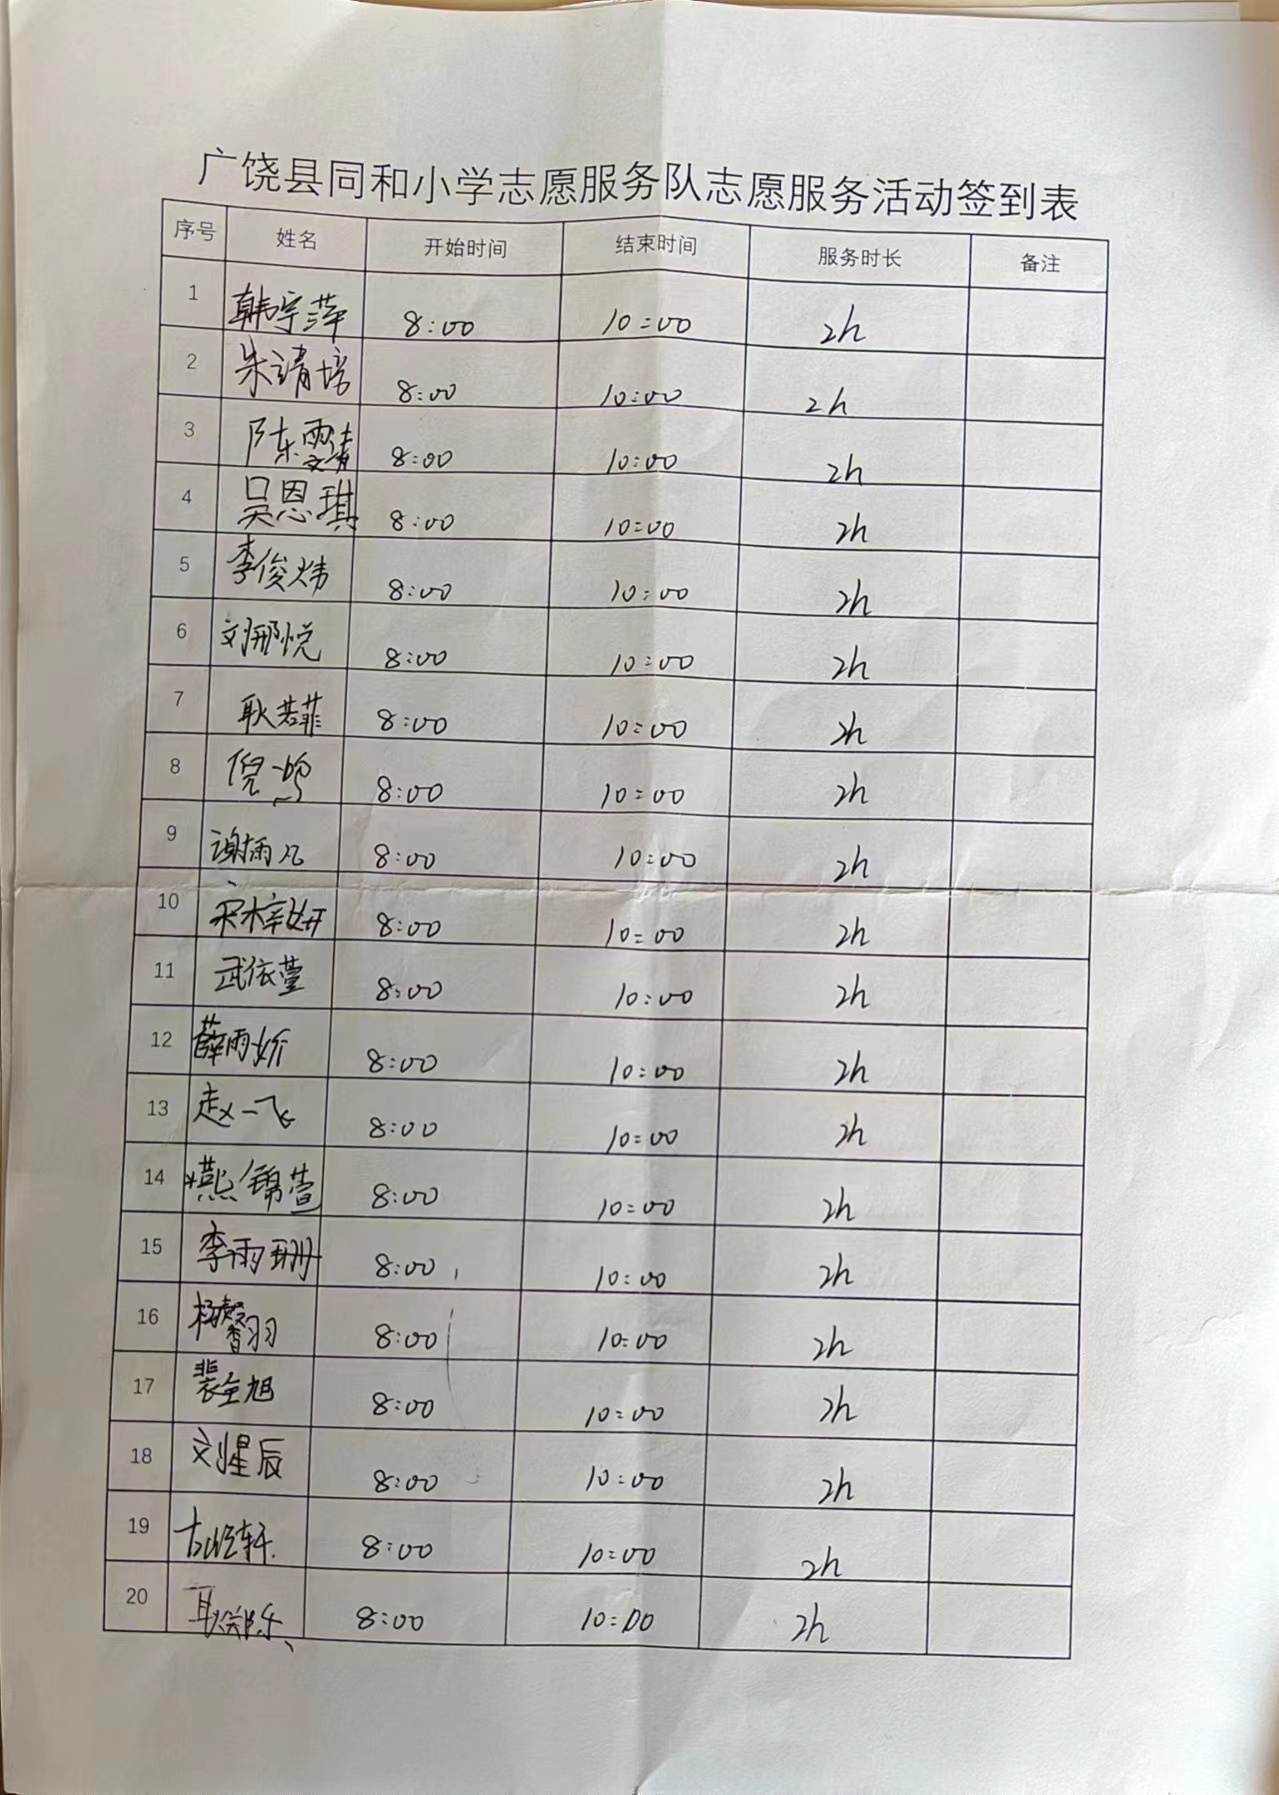 广饶县同和小学志愿服务队志愿服务活动签到表
序号 姓名 开始时间 结束时间 服务时长 备注
1 韩宇萍 8:00 10:00 2h
2 朱靖培 8:00 10:00 2h
3 陈雯婧 8:00 10:00 2h
4 吴恩琪 8:00 10:00 2h
5 李俊炜 8:00 10:00 2h
6 刘那悦 8:00 10:00 2h
7 耿若菲 8:00 10:00 2h
8 倪一鸣 8:00 10:00 2h
9 谢雨凡 8:00 10:00 2h
10 宋梓妍 8:00 10:00 2h
11 武依萱 8:00 10:00 2h
12 薛雨妡 8:00 10:00 2h
13 赵一飞 8:00 10:00 2h
14 燕锦萱 8:00 10:00 2h
15 李雨珊 8:00 10:00 2h
16 杨馨羽 8:00 10:00 2h
17 裴全旭 8:00 10:00 2h
18 刘星辰 8:00 10:00 2h
19 8:00 10:00 2h
20 8:00 10:00 2h